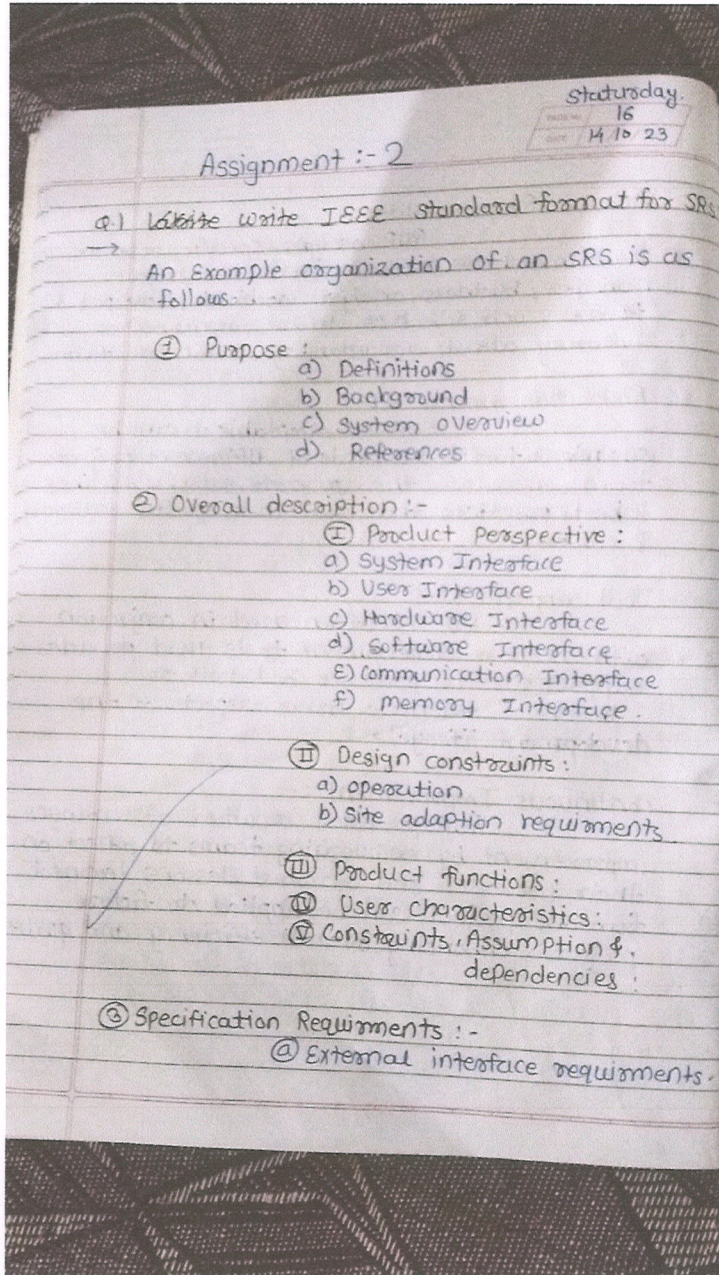 Staturday.
PAGE No. 16
DATE 14 10 23
Assignment :- 2
Q.1 Write IEEE Standard format for SRS
→
An Example organization of an SRS is as
follows.
① Purpose :
a) Definitions
b) Background
c) System overview
d) References
② Overall description :-
Ⓘ Product Perspective :
a) System Interface
b) User Interface
c) Hardware Interface
d) Software Interface
E) Communication Interface
f) memory Interface.
Ⅱ Design constraints :
a) operation
b) Site adaption requirments
Ⅲ Product functions :
Ⅳ User characteristics :
Ⅴ Constraints, Assumption &,
dependencies :
③ Specification Requirments :-
ⓐ External interface requirments.